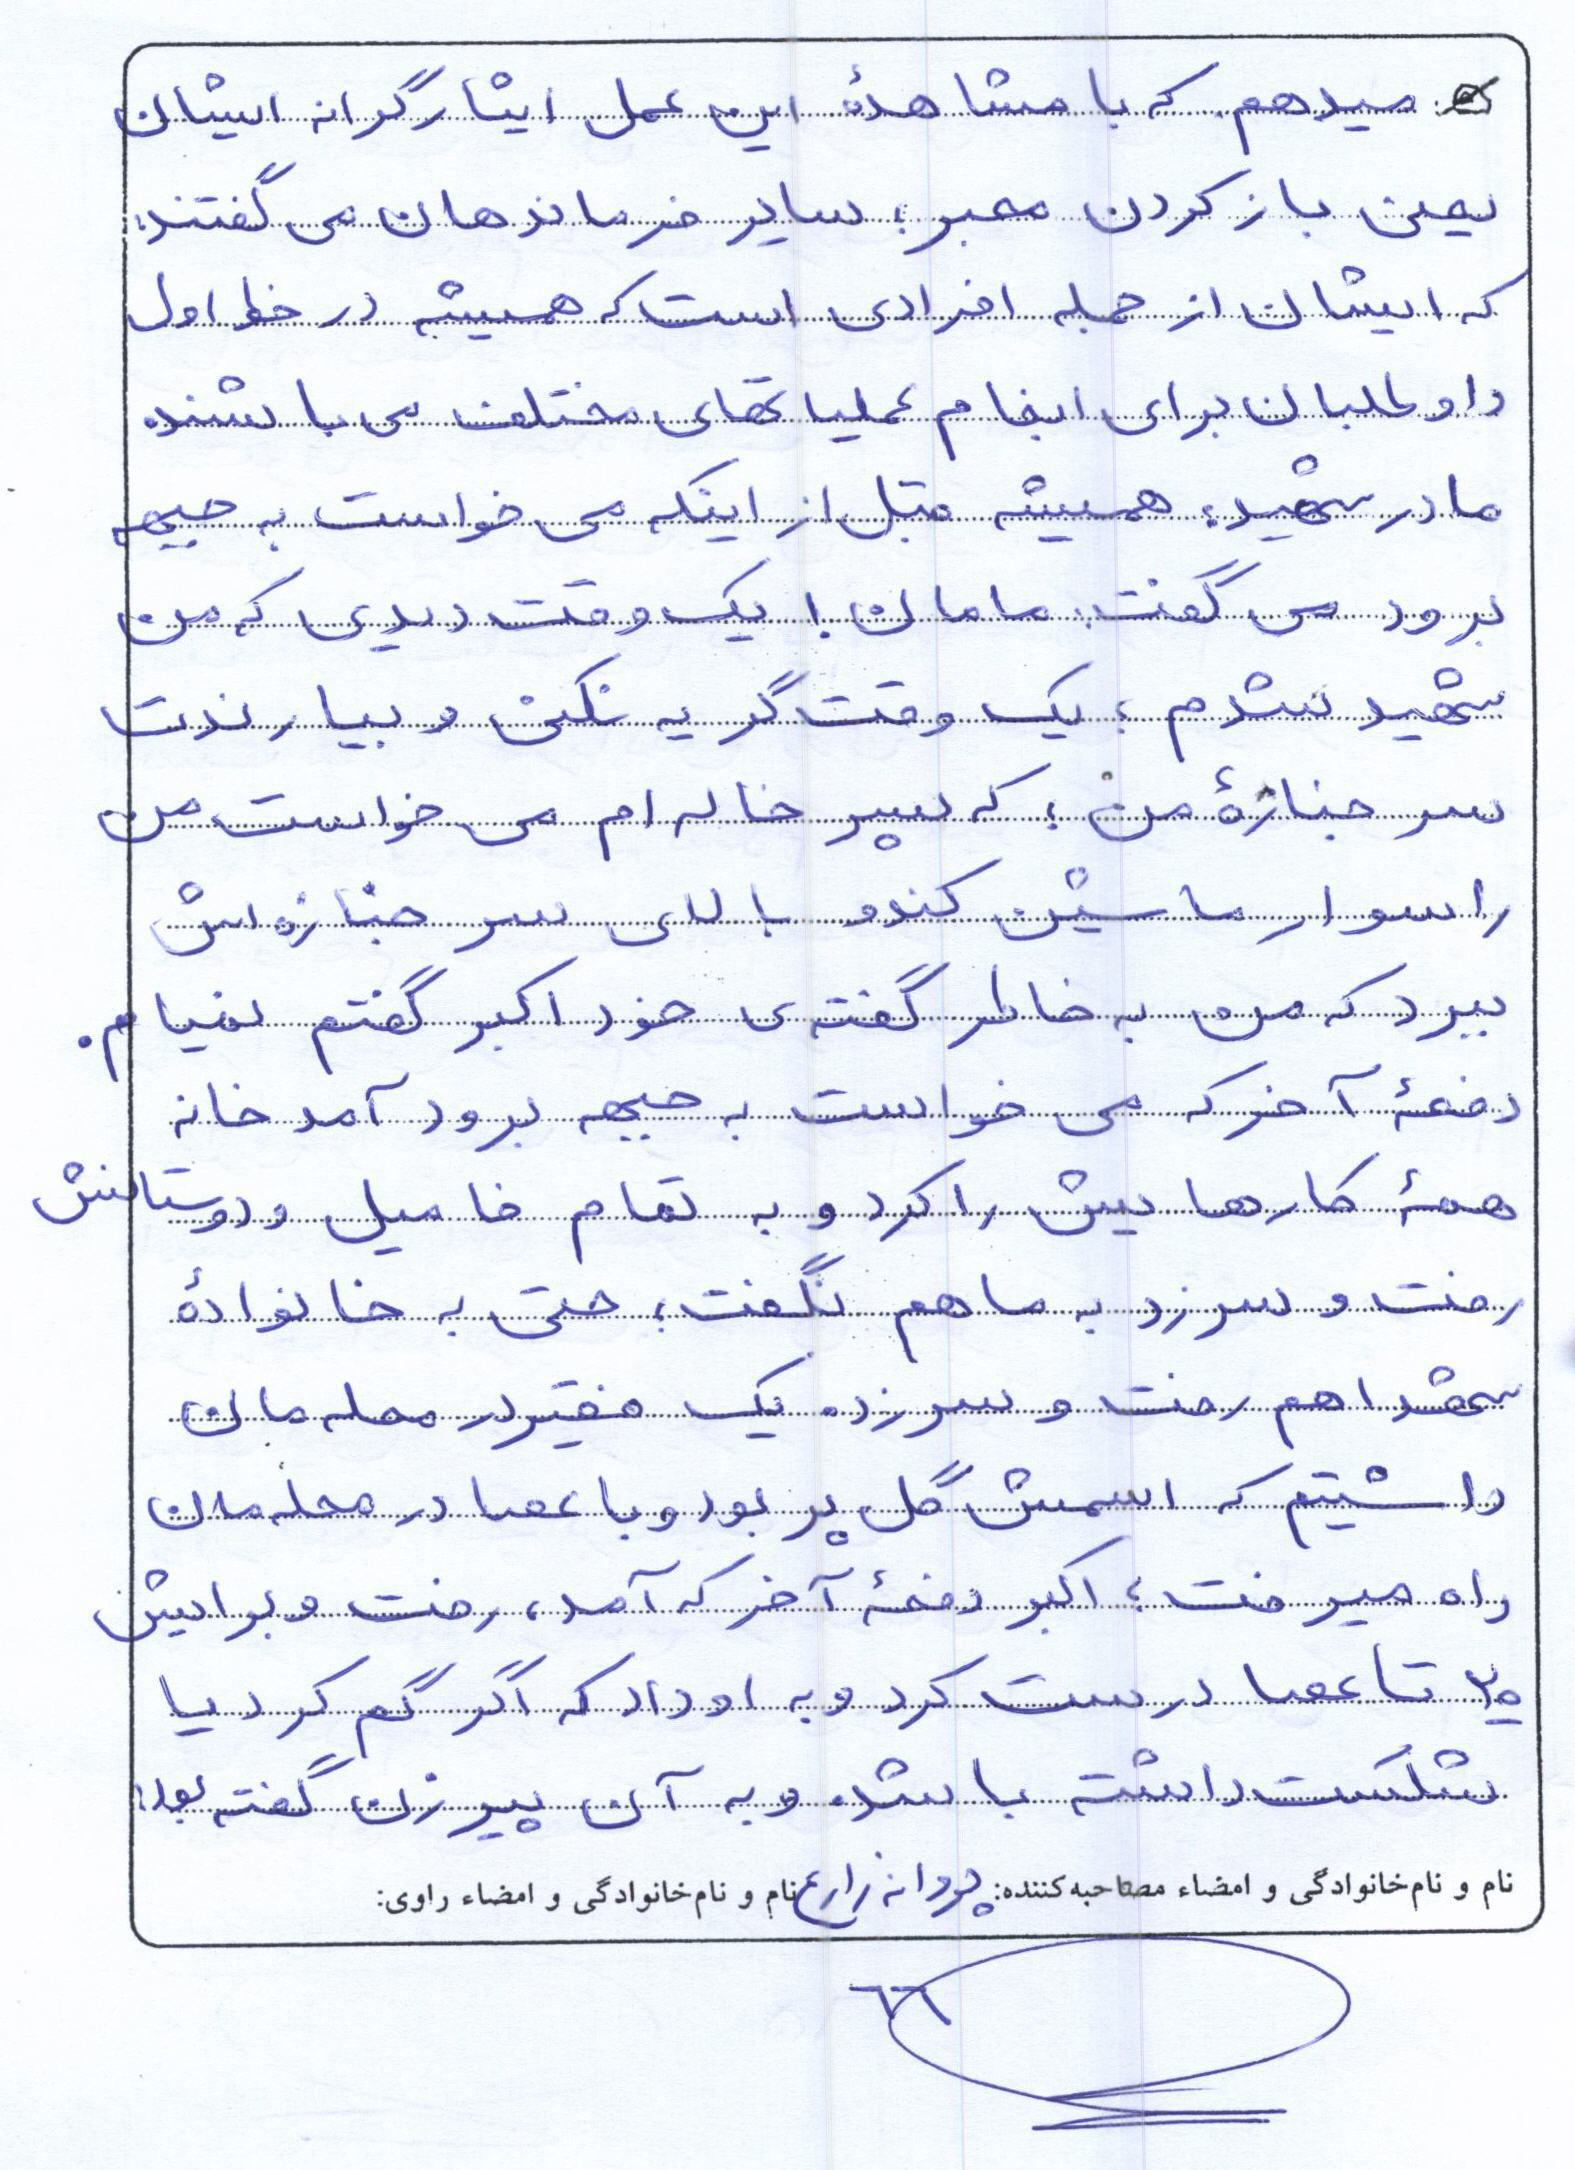 میدهم. که با مشاهدهٔ این عمل ایثارگرانه ایشان
یعنی باز کردن معبر؛ سایر فرماندهان می گفتند:
که ایشان از جمله افرادی است که همیشه در خط اول
داوطلبان برای انجام عملیاتهای مختلف می باشند.
مادر شهید: همیشه قبل از اینکه می خواست به جبهه
برود می گفت: مامان! یک وقت دیدی که من
شهید شدم؛ یک وقت گریه نکنی و بیارندت
سر جنازهٔ من؛ که پسر خاله ام می خواست من
را سوار ماشین کند و بالای سر جنازه ش
ببرد که من به خاطر گفته ی خود اکبر گفتم نمیام.
دفعهٔ آخر که می خواست به جبهه برود آمد خانه
همهٔ کارهایش را کرد و به تمام فامیل و دوستانش
رفت و سر زد به ما هم نگفت؛ حتی به خانوادهٔ
شهدا هم رفت و سر زد. یک فقیر در محله مان
داشتیم که اسمش گل پر بود و با عصا در محله مان
راه میرفت؛ اکبر دفعهٔ آخر که آمد، رفت و برایش
۲۰ تا عصا درست کرد و به او داد که اگر گم کرد یا
شکست داشته باشد. و به آن پیرزن گفته بود:
نام و نام‌خانوادگی و امضاء مصاحبه‌کننده: پروانه زارع نام و نام‌خانوادگی و امضاء راوی: